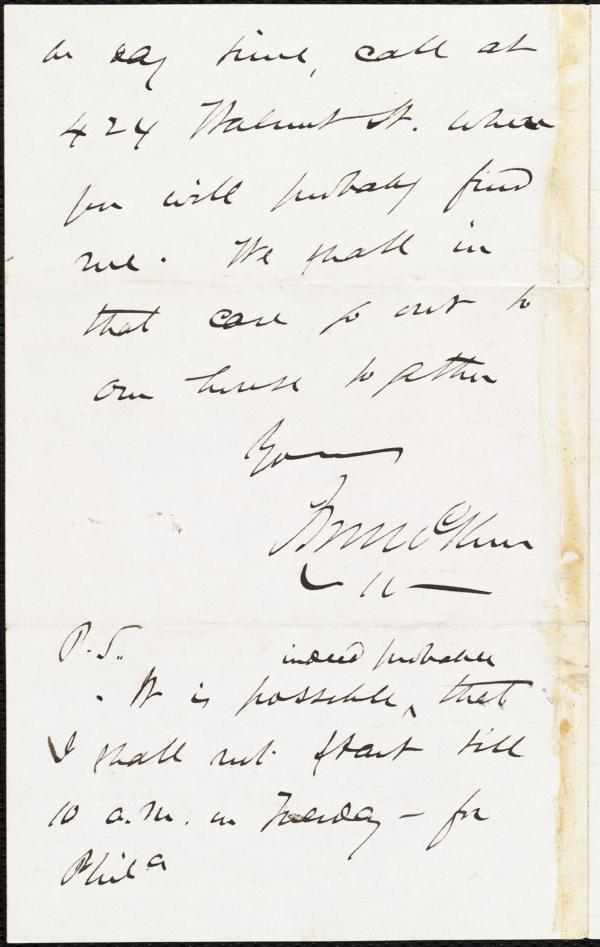 in day time, call at
424 Walnut St. where
you will probably find
me. We shall in
that case go out to
our house together
Yours
J. M. McKim
P.S.
indeed probable
It is possible, ‸ that
I shall not start till
10 a.m. on Tuesday - for
Phila